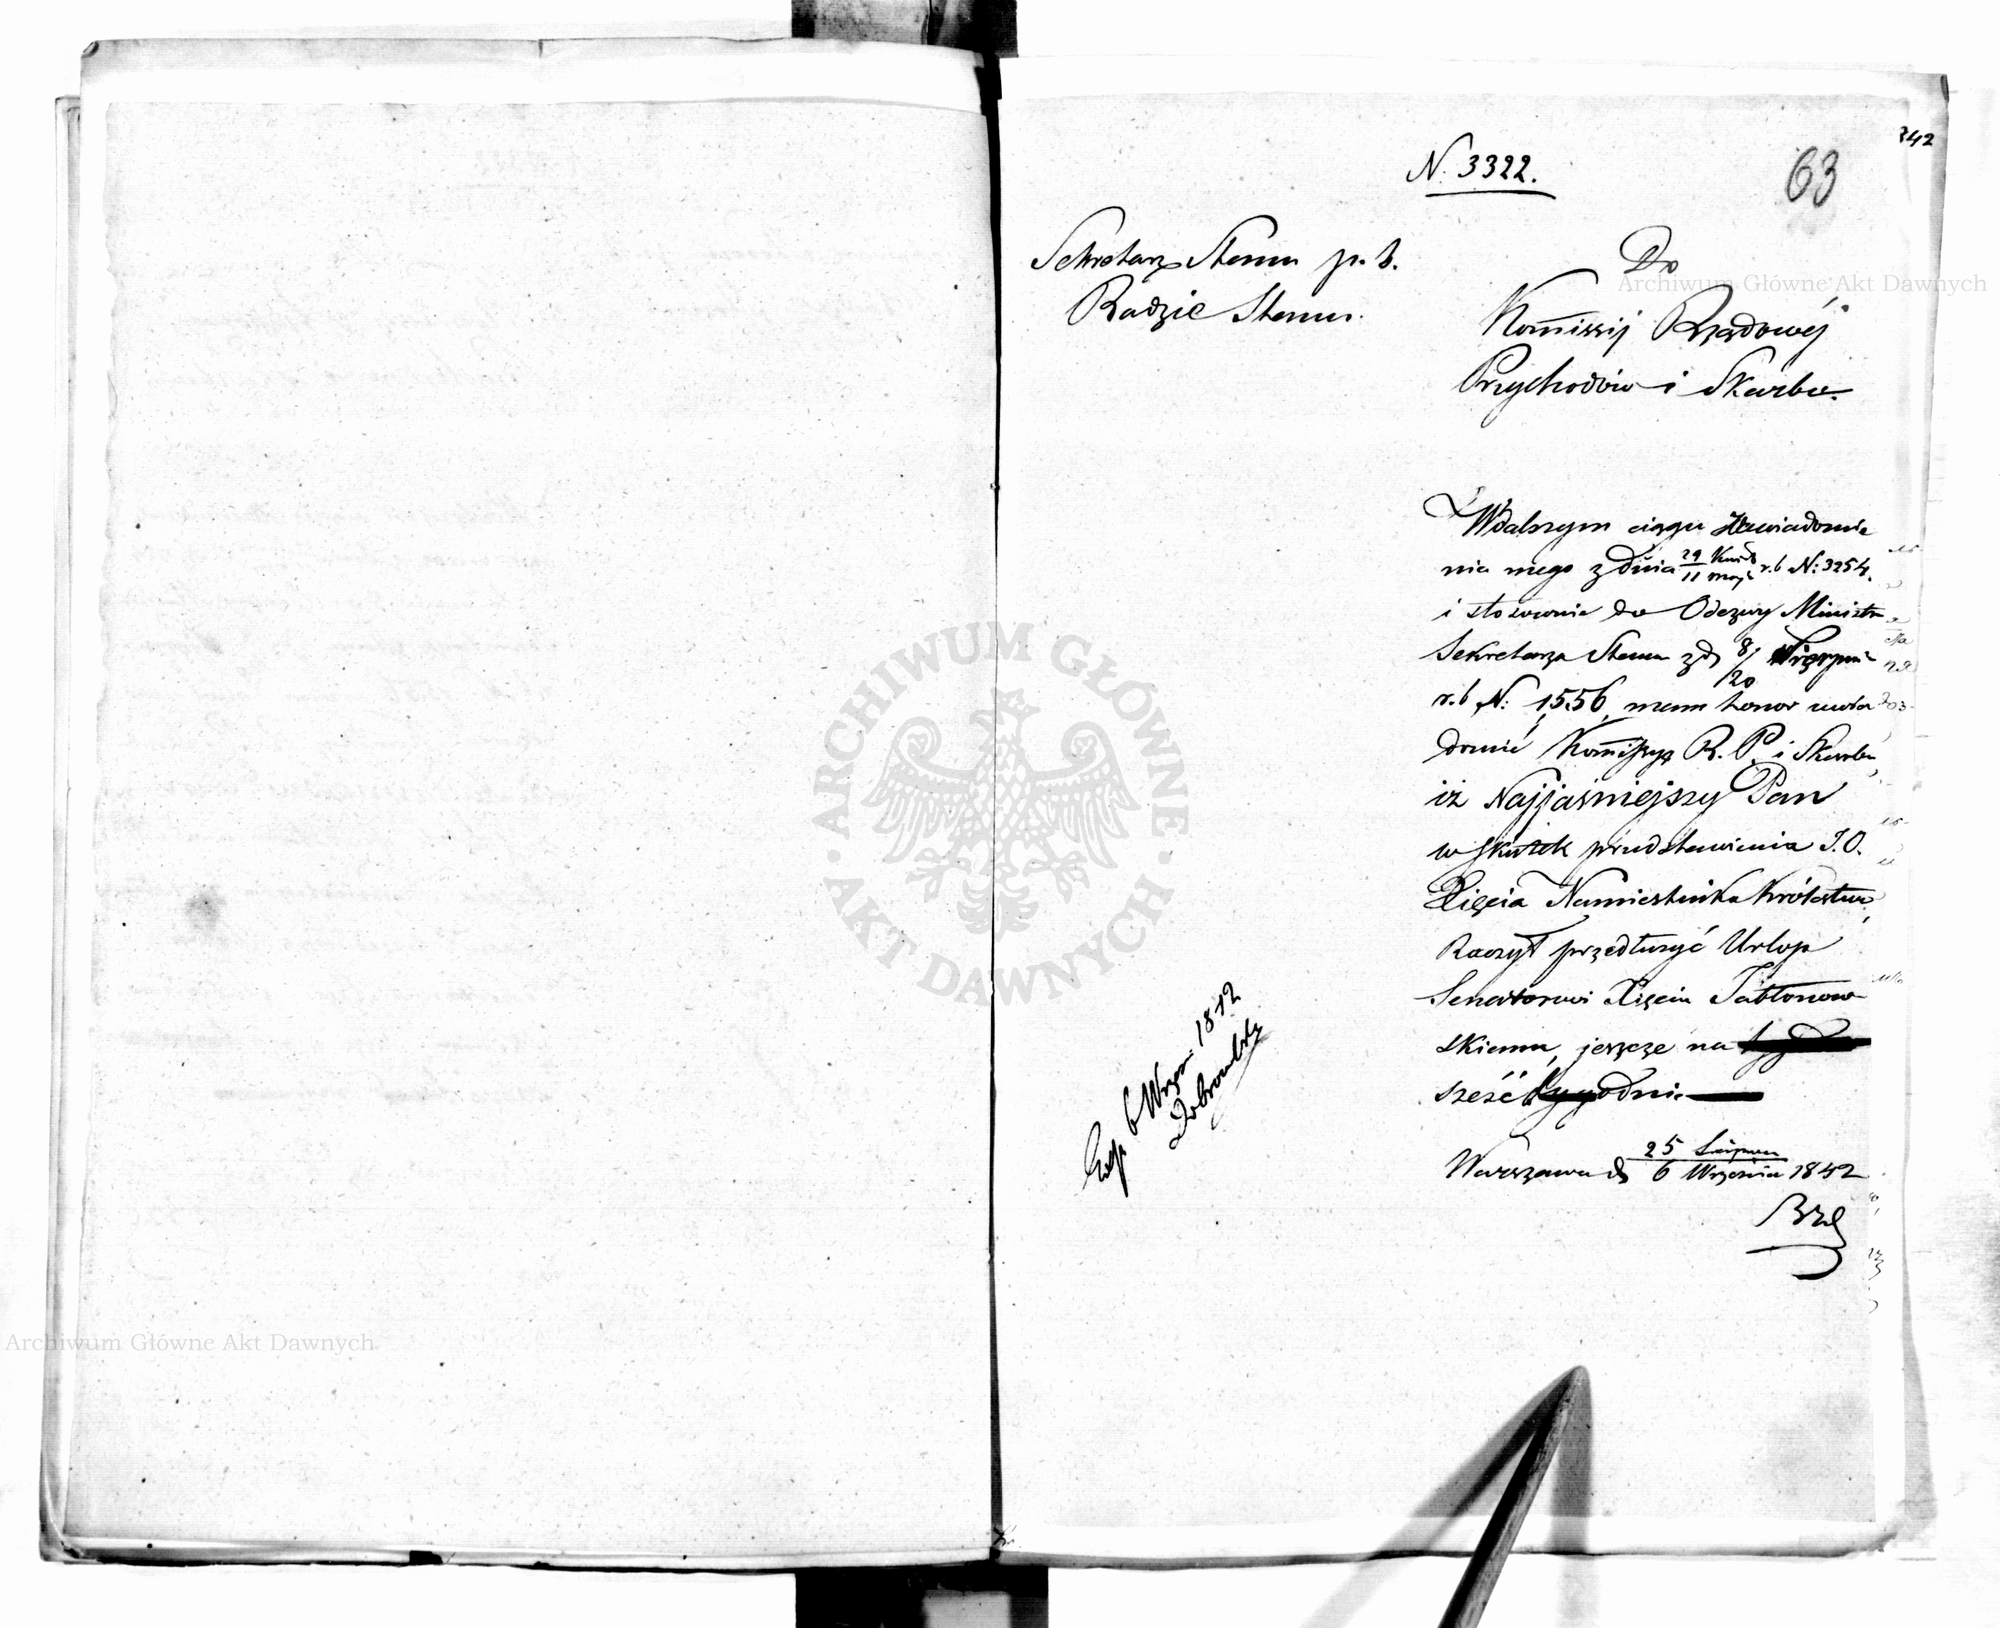 242
N. 3322.
63
Sekretarz Stanu p. b.
Radzie Stanu.
Do
Kommissij Rządowéj
Przychodów i Skarbu.
W dalszym ciągu zawiadomie
nia mego z dnia 29 Kwiet / 11 Maja r. b N: 3254.
i stosownie do Odezwy Ministra
Sekretarza Stanu z d 8/20 Sierpnia
r. b N: 1,556, mam honor uwia
domić Kommissyą R. P. i Skarbu
iż Najjaśniejszy Pan
w skutek przedstawienia J. O.
Xięcia Namiestnika Królestwa,
Raczył przedłużyć Urlop
Senatorowi Xięciu Jabłonow
skiemu, jeszcze na
sześć tygodni
Warszawa d 25 Sierpnia / 6 Września 1842
Exp. 6 Wrześ. 1842
Archiwum Główne Akt Dawnych
ARCHIWUM GŁÓWNE
AKT DAWNYCH
Archiwum Główne Akt Dawnych